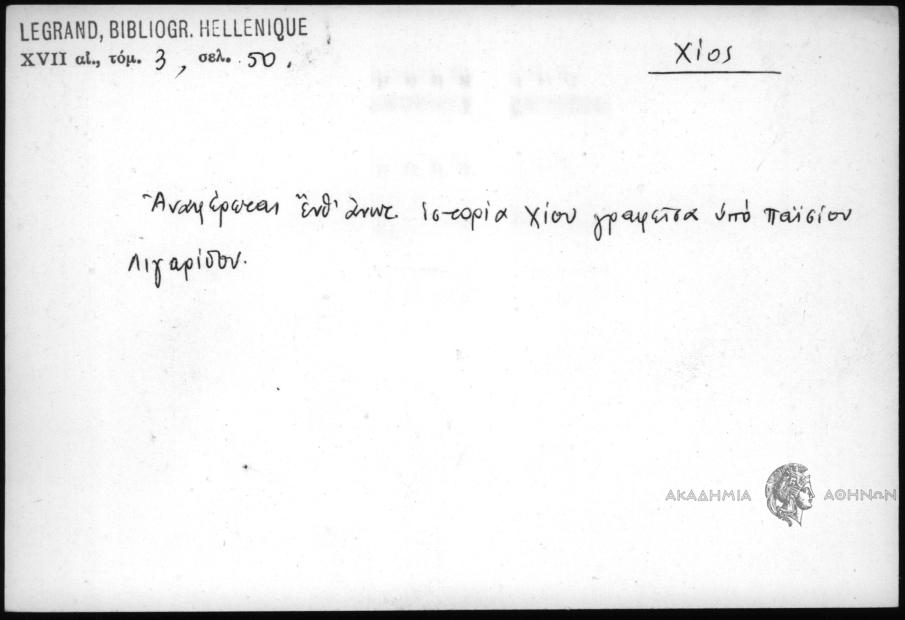 LEGRAND, BIBLIOGR. HELLENIQUE
XVII αἰ., τόμ. 3, σελ. 50.
Χίος
Ἀναφέρεται ἔνθ' ἀνωτ. ἱστορία Χίου γραφεῖσα ὑπό Παϊσίου
Λιγαρίδου.
ΑΚΑΔΗΜΙΑ ΑΘΗΝΩΝ